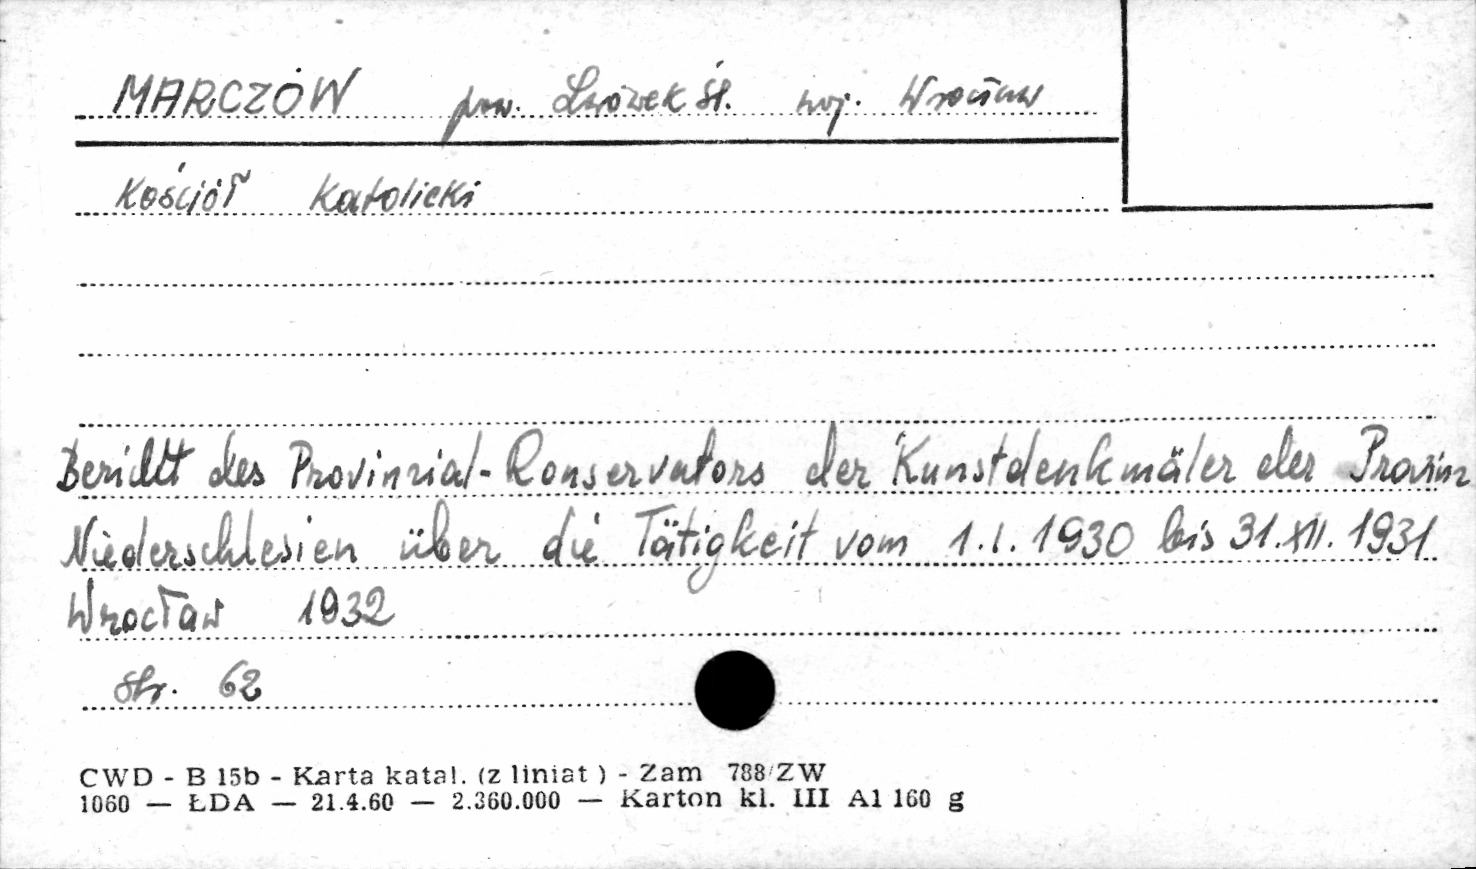 MARCZÓW pow. Lwówek Śl. woj. Wrocław
Kościół Katolicki
Bericht des Provinzial-Konservators der Kunstdenkmäler der Provinz
Niederschlesien über die Tätigkeit vom 1.I.1930 bis 31.XII.1931
Wrocław 1932
str. 62
CWD - B 15b - Karta katal. (z liniat ) - Zam 788/ZW
1060 — ŁDA — 21.4.60 — 2.360.000 — Karton kl. III A1 160 g